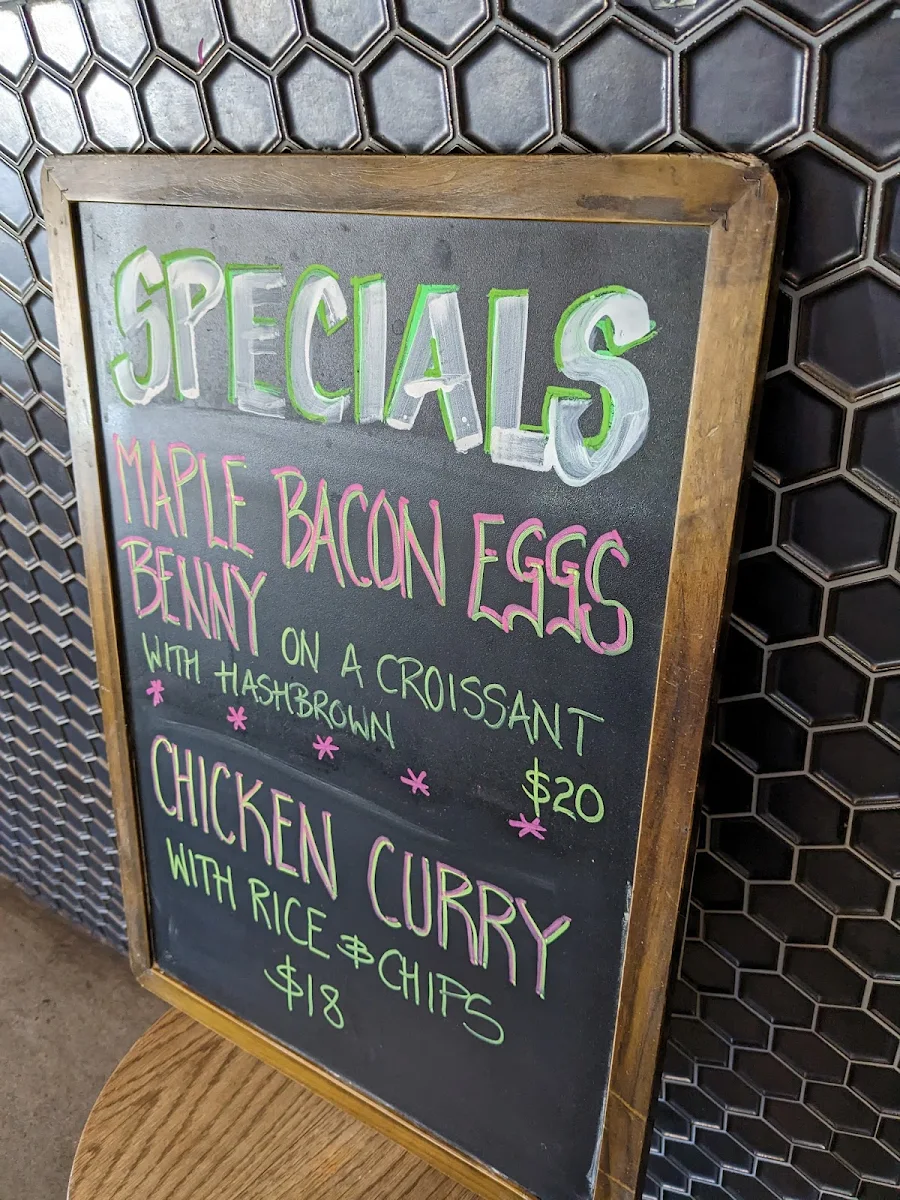 SPECIALS
MAPLE BACON EGGS
BENNY ON A CROISSANT
WITH HASHBROWN
$20
CHICKEN CURRY
WITH RICE & CHIPS
$18